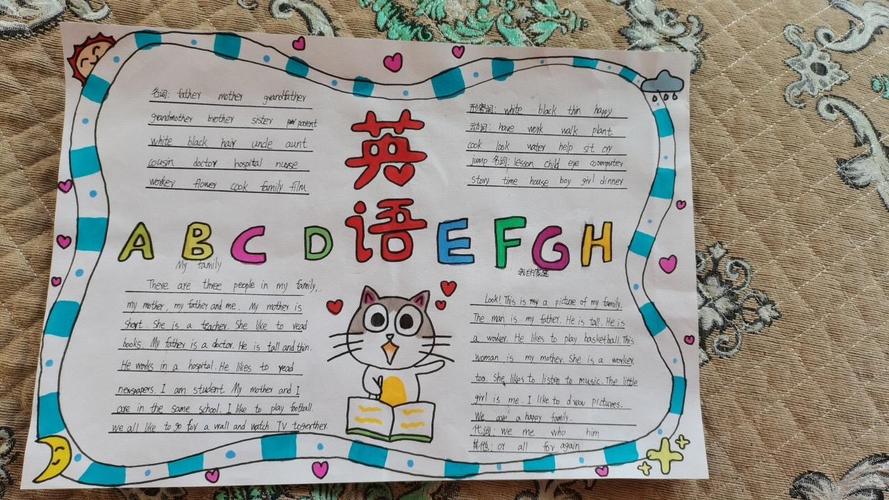 名词: father mother grandfather
grandmother brother sister parent
white black hair uncle aunt
cousin doctor hospital nurse
worker flower cook family film
英语
形容词: white black thin happy
动词: have work walk plant
cook look water help sit cry
jump 名词: lesson child eye computer
story time house boy girl dinner
A B C D E F G H
My family
There are three people in my family,
my mother, my father and me. My mother is
short. She is a teacher. She like to read
books. My father is a doctor. He is tall and thin.
He works in a hospital. He likes to read
newspapers. I am student. My mother and I
are in the same school. I like to play football.
We all like to go for a wall and watch TV togerther.
Look! This is my a picture of my family.
The man is my father. He is tall. He is
a worker. He likes to play basketball. This
woman is my mother. She is a worker
too. She likes to listen to music. The little
girl is me. I like to draw pictures.
We are a happy family.
代词: we me who him
其他: or all for again